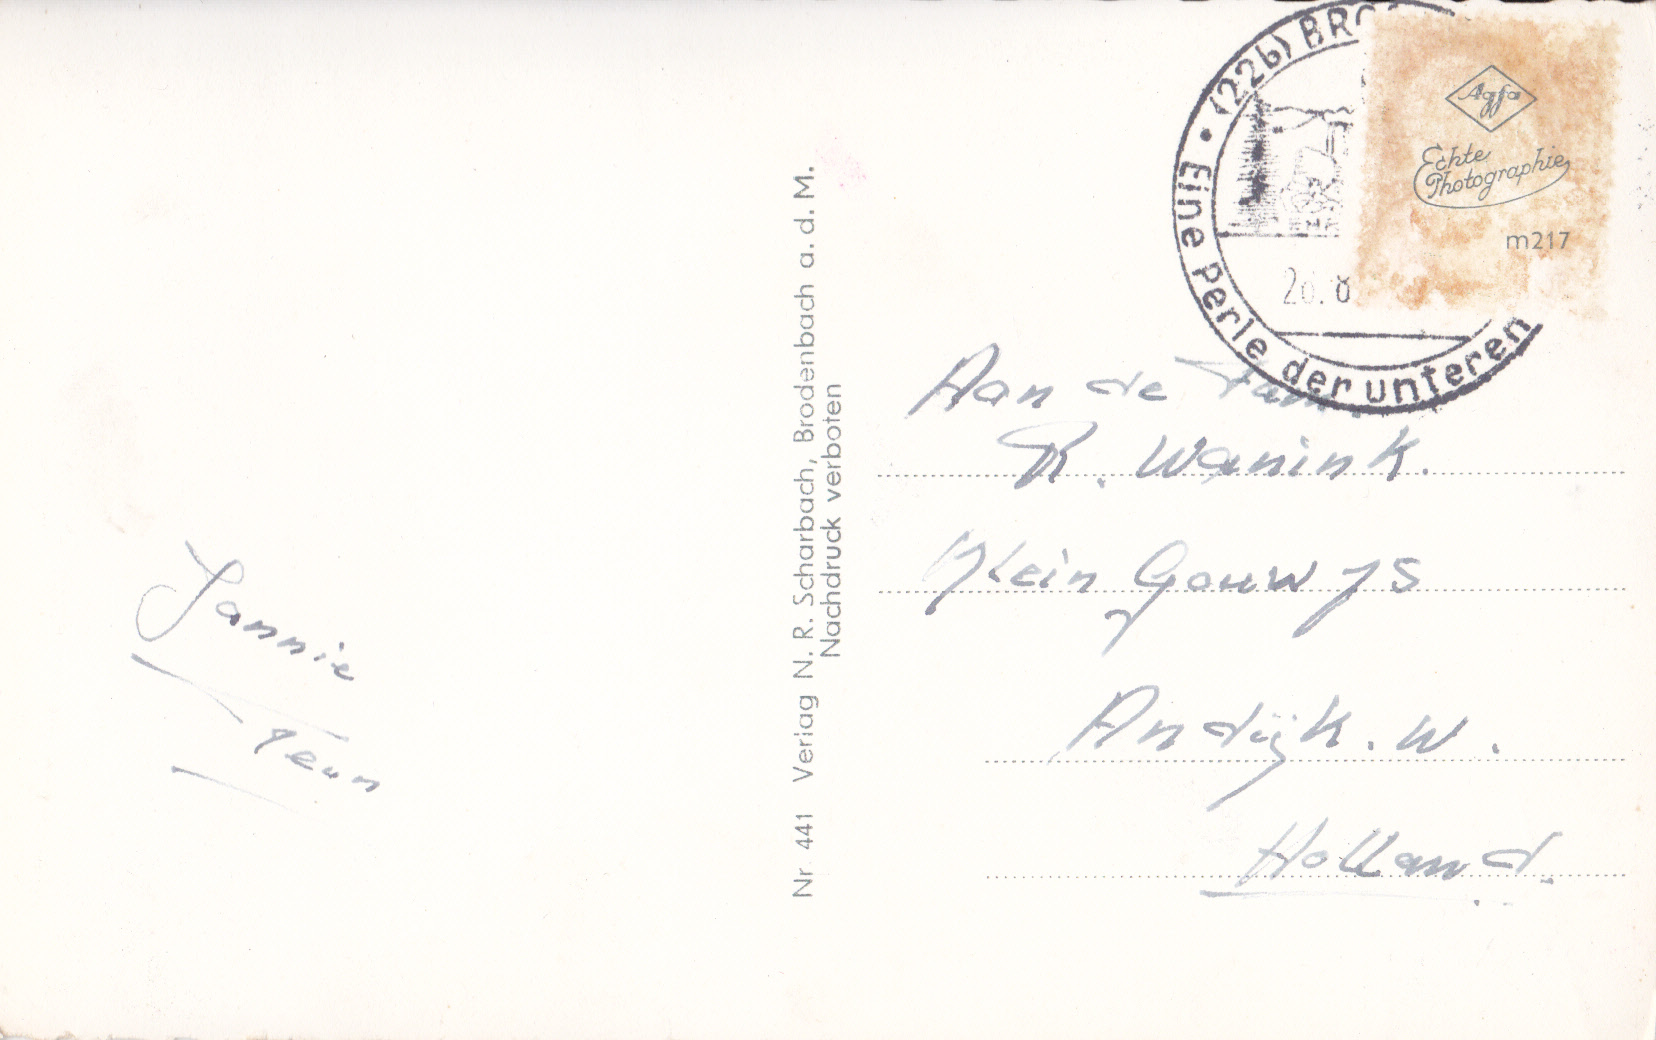 Jannie
Teun
Nr. 441 Verlag N. R. Scharbach, Brodenbach a. d. M.
Nachdruck verboten
(22b) BRO
Eine Perle der unteren
Agfa
Echte
Photographie
m217
Aan de Fam.
R. Wanink.
Klein Gouw 75
Andijk. W.
Holland.